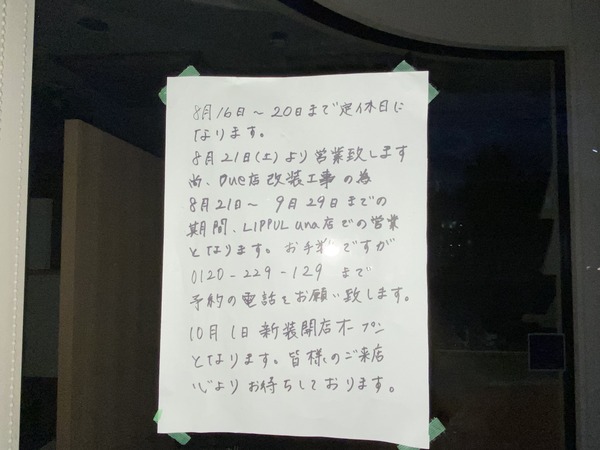 8月16日～20日まで定休日に
なります。
8月21日(土)より営業致します
尚、Due店改装工事の為
8月21日～9月29日までの
期間、LIPPUL una店での営業
となります。お手数ですが
0120-229-129まで
予約の電話をお願い致します。
10月1日新装開店オープン
となります。皆様のご来店
心よりお待ちしております。